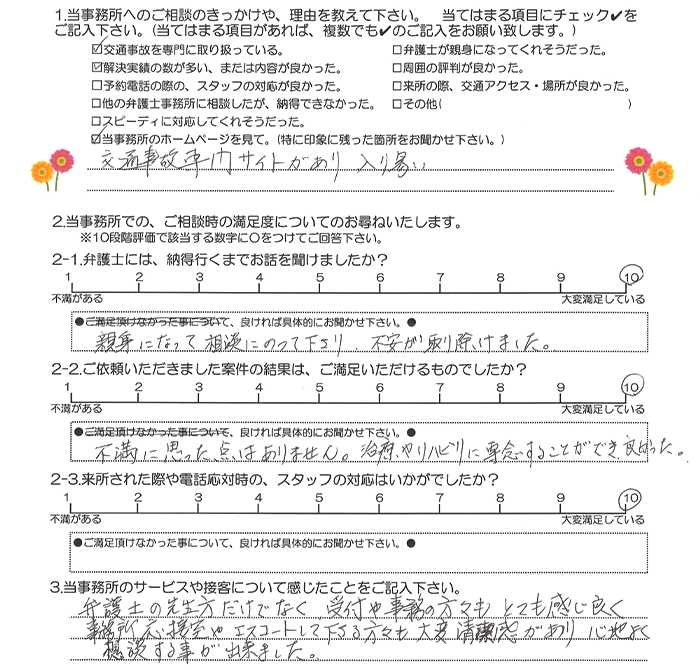 1.当事務所へのご相談のきっかけや、理由を教えて下さい。　当てはまる項目にチェック✔を
ご記入下さい。(当てはまる項目があれば、複数でも✔のご記入をお願い致します。)
☑交通事故を専門に取り扱っている。　□弁護士が親身になってくれそうだった。
☑解決実績の数が多い、または内容が良かった。　□周囲の評判が良かった。
□予約電話の際の、スタッフの対応が良かった。　□来所の際、交通アクセス・場所が良かった。
□他の弁護士事務所に相談したが、納得できなかった。　□その他(　　　)
□スピーディに対応してくれそうだった。
☑当事務所のホームページを見て。(特に印象に残った箇所をお聞かせ下さい。)
交通事故専門サイトがあり 入り易い
2.当事務所での、ご相談時の満足度についてのお尋ねいたします。
※10段階評価で該当する数字に〇をつけてご回答下さい。
2-1.弁護士には、納得行くまでお話を聞けましたか？
1 2 3 4 5 6 7 8 9 10
不満がある　大変満足している
●ご満足頂けなかった事について、良ければ具体的にお聞かせ下さい。●
親身になって相談にのって下さり、不安が取り除けました。
2-2.ご依頼いただきました案件の結果は、ご満足いただけるものでしたか？
1 2 3 4 5 6 7 8 9 10
不満がある　大変満足している
●ご満足頂けなかった事について、良ければ具体的にお聞かせ下さい。●
不満に思った点はありません。治療やリハビリに専念することができ良かった。
2-3.来所された際や電話応対時の、スタッフの対応はいかがでしたか？
1 2 3 4 5 6 7 8 9 10
不満がある　大変満足している
●ご満足頂けなかった事について、良ければ具体的にお聞かせ下さい。●
3.当事務所のサービスや接客について感じたことをご記入下さい。
弁護士の先生方だけでなく 受付や事務の方々も とても感じ良く
事務所応接室やエスコートして下さる方々も大変清潔感があり 心地よく
相談する事が出来ました。